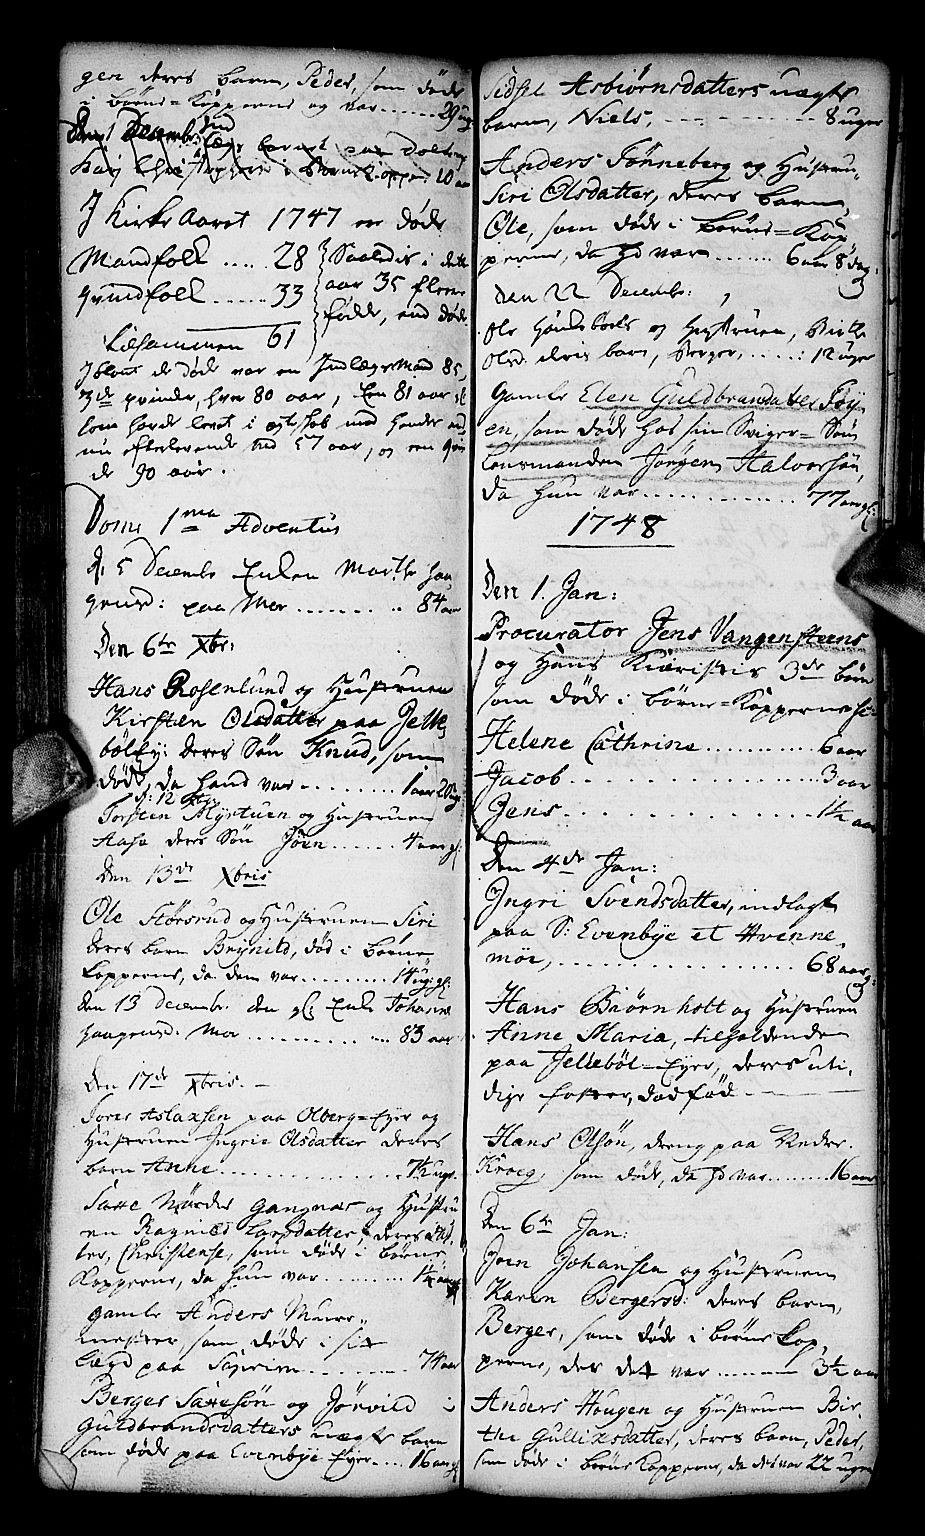 gen deres barn, Peder, som døde
i børne=Kopperne og var ...... 29 ug
Den 1 Decembr:
i Børnekopper 10 aar
I Kirke Aaret 1747 er døde
Mandfolk ..... 28
Qvindfolk ...... 33
Tilsammen 61
Saaledis i dette
aar 35 flere
fødde, end døde
Iblant de døde var en Indlægs Mand 85,
3de qvinder, hver 80 aar, Een 81 aar gl
som hafde levet i ægteskab med hendes end
nu efterlevende Md 57 aar, og een qvin
de 90 aar.
Dom: 1ma Adventus
d: 5 Decembr Enken Marthe Haa
gensd: paa Moe ........ 84 aar
Den 6te Xbr:
Hans Rosenlund og Hustruen
Kirsten Olsdatter paa Jelle
bøl Ey: deres Søn Knud, som
døde, da hand var ........ 1 aar 20 ug
d: 12
Torsten Myrtuen og Hustruen
Aase deres Søn Jøen ...... 4 aar gl:
Den 13de Xbris
Ole Størsrud og Hustruen Siri
deres barn Brynild, død i børne
Kopperne, da den var ........ 14 ug: gl:
den 13 decembr: den gl: Enke Johanne
Haagensd: Moe ............ 83 aar
Den 17de Xbris. –
Søren Aslaxsen paa Olberg=Eyer og
Hustruen Ingrie Olsdatter deres
barn Anne ............ 7½ ugr.
Saxe Gangnæs og Hustru
en Ragnild Larsdatter, deres dat
ter, Christense, som døde i børne
Kopperne, da hun var ........ 1¼ aar gl
gamle Anders Muur=
mester, som døde i sit
lægd paa ........ 74 aar
Berger Saxesøn og Jørvild
Guldbrandsdatters uægte barn
som døde paa Evenbye Eyer .... 16 aar gl
Sidsel Asbiørnsdatters uægte
barn, Niels, ........ 8 uger
Anders Tønneberg og Hustru,
Siri Olsdatter, deres barn,
Ole, som døde i børne=Kop
perne, da hd var ....... 6 aar 8 dag:
Den 22 Decembr:
Ole og Hustruen, Birthe
Olsd. deris barn, Berger, .....: 12 uger
Gamle Elen Guldbrandatter Tøy
en, som døde hos sin Sviger=Søn
Lensmanden Jørgen Halvorsøn,
da hun var ............ 77 aar gl:
1748
Den 1. Jan:
Procurator Jens Vangensteens
og Hans Kiæristis 3de børn
som døde i børne=Kopperne
Helene Cathrine ......... 6 aar
Jacob ................ 3 aar
Jens ................ 1½ aar
Den 4de Jan:
Ingri Svendsdatter, indlagt
paa S: Evenbye et Hvenne
moe, ................ 68 aar gl:
Hans Biørnholt og Hustruen
Anne Maria, tilholdende
paa Jellebøl=Eyer, deres uti,
dige foster, dødfød
Hans Olsøn, dreng paa Neder
Kroeg, som døde, da hd var ....... 16 aar
Den 6te Jan:
Joen Johansen og Hustruen
Karen Bergersd: deres barn,
Berger, som døde i børne Kop,
perne, der det var ........ 3½ aar
Anders Haugen og Hustruen Bir=
the Gullixsdatter, deres barn, Peder,
som døde i børne Kopperne, da det var 22 uger